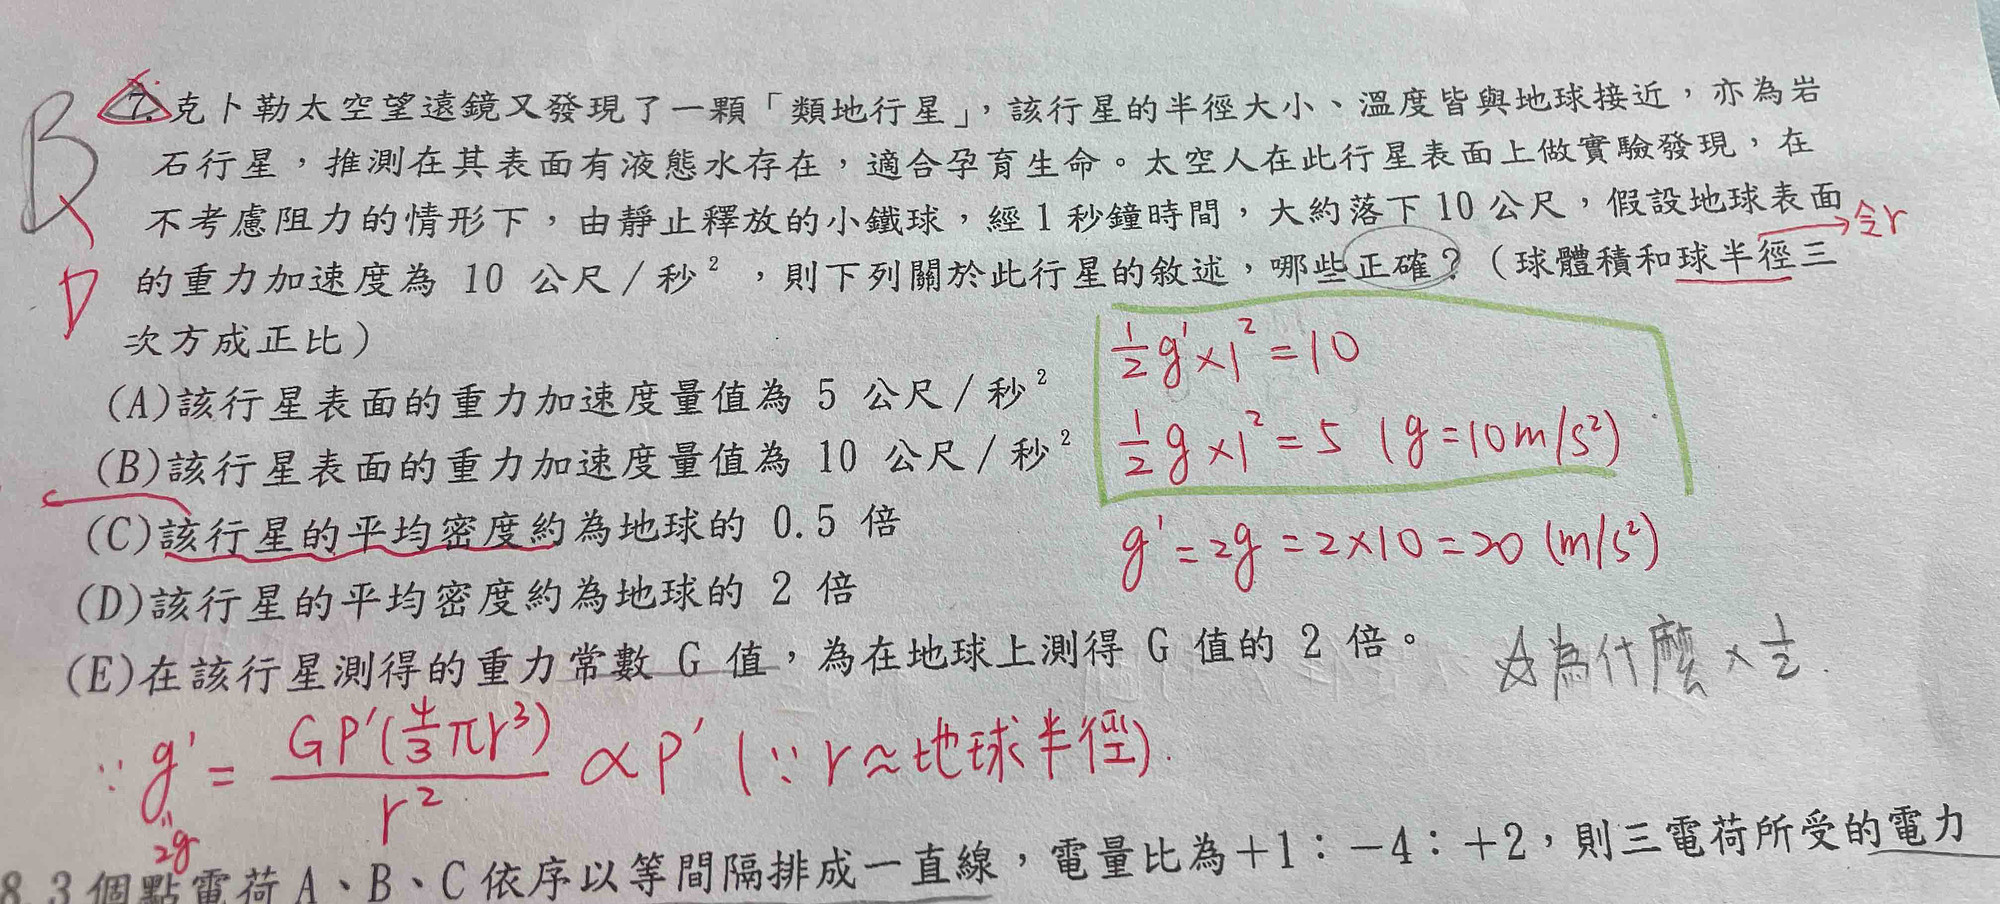 B
D
7.克卜勒太空望遠鏡又發現了一顆「類地行星」，該行星的半徑大小、溫度皆與地球接近，亦為岩
石行星，推測在其表面有液態水存在，適合孕育生命。太空人在此行星表面上做實驗發現，在
不考慮阻力的情形下，由靜止釋放的小鐵球，經1秒鐘時間，大約落下10公尺，假設地球表面
令r
的重力加速度為 10 公尺／秒²，則下列關於此行星的敘述，哪些正確？（球體積和球半徑三
次方成正比）
½g'×1²=10
(A)該行星表面的重力加速度量值為 5 公尺／秒²
½g×1²=5 (g=10m/s²)
(B)該行星表面的重力加速度量值為 10 公尺／秒²
(C)該行星的平均密度約為地球的 0.5 倍
g'=2g=2×10=20 (m/s²)
(D)該行星的平均密度約為地球的 2 倍
(E)在該行星測得的重力常數 G 值，為在地球上測得 G 值的 2 倍。
☆為什麼×½.
∵ g' = Gρ'(4/3πr³)/r² ∝ρ' (∵ r≈地球半徑).
"
2g
8.3個點電荷A、B、C依序以等間隔排成一直線，電量比為＋1：－4：＋2，則三電荷所受的電力